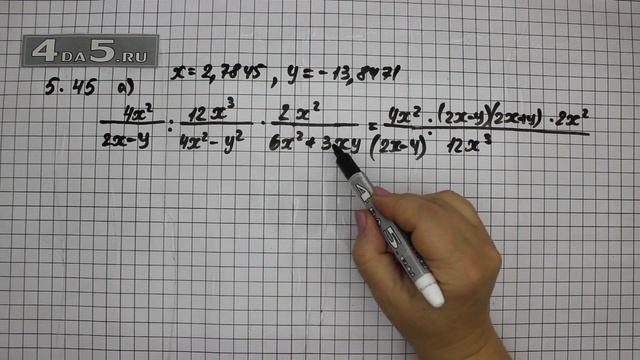 4DA5.RU
x=2,7845, y=-13,8471
5.45 а)
4x²/2x-y : 12x³/4x²-y² · 2x²/6x²+3xy = 4x²·(2x-y)(2x+y)·2x²/(2x-y)· 12x³